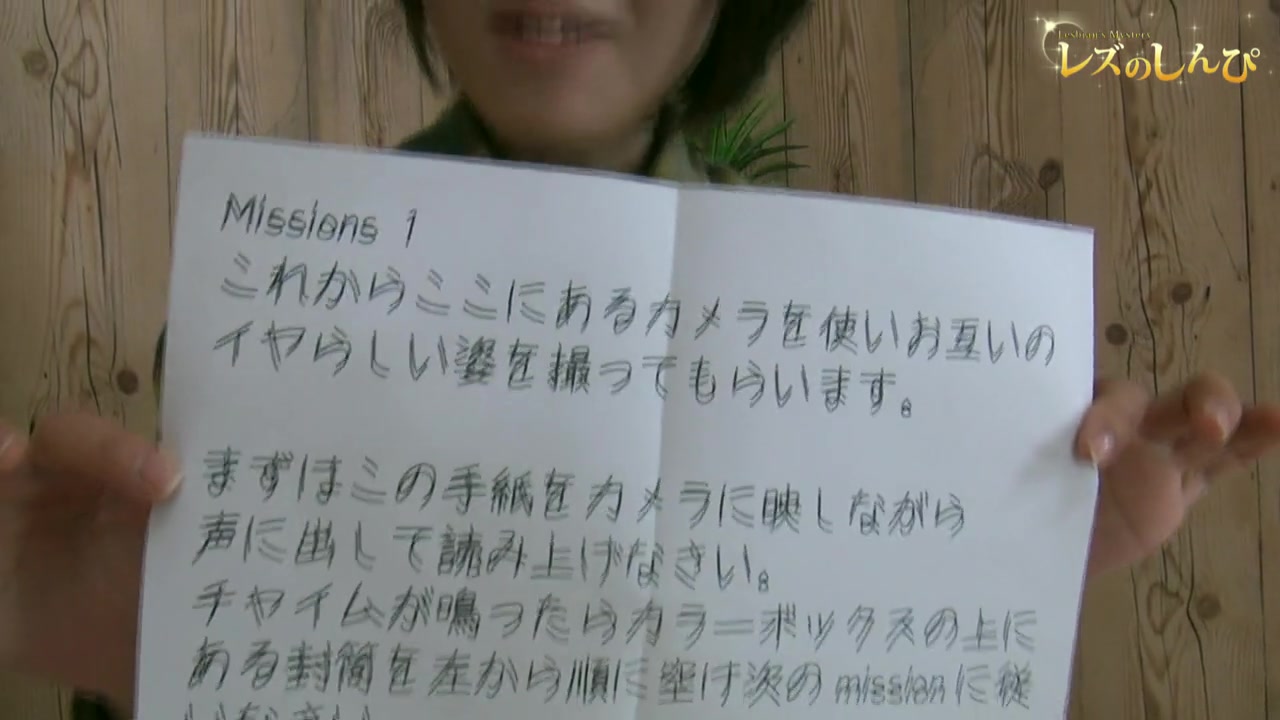 Lesbian's Mystery
レズのしんぴ
Missions 1
これからここにあるカメラを使いお互いの
イヤらしい姿を撮ってもらいます。
まずはこの手紙をカメラに映しながら
声に出して読み上げなさい。
チャイムが鳴ったらカラーボックスの上に
ある封筒を左から順に空け次のmissionに従
いなさい